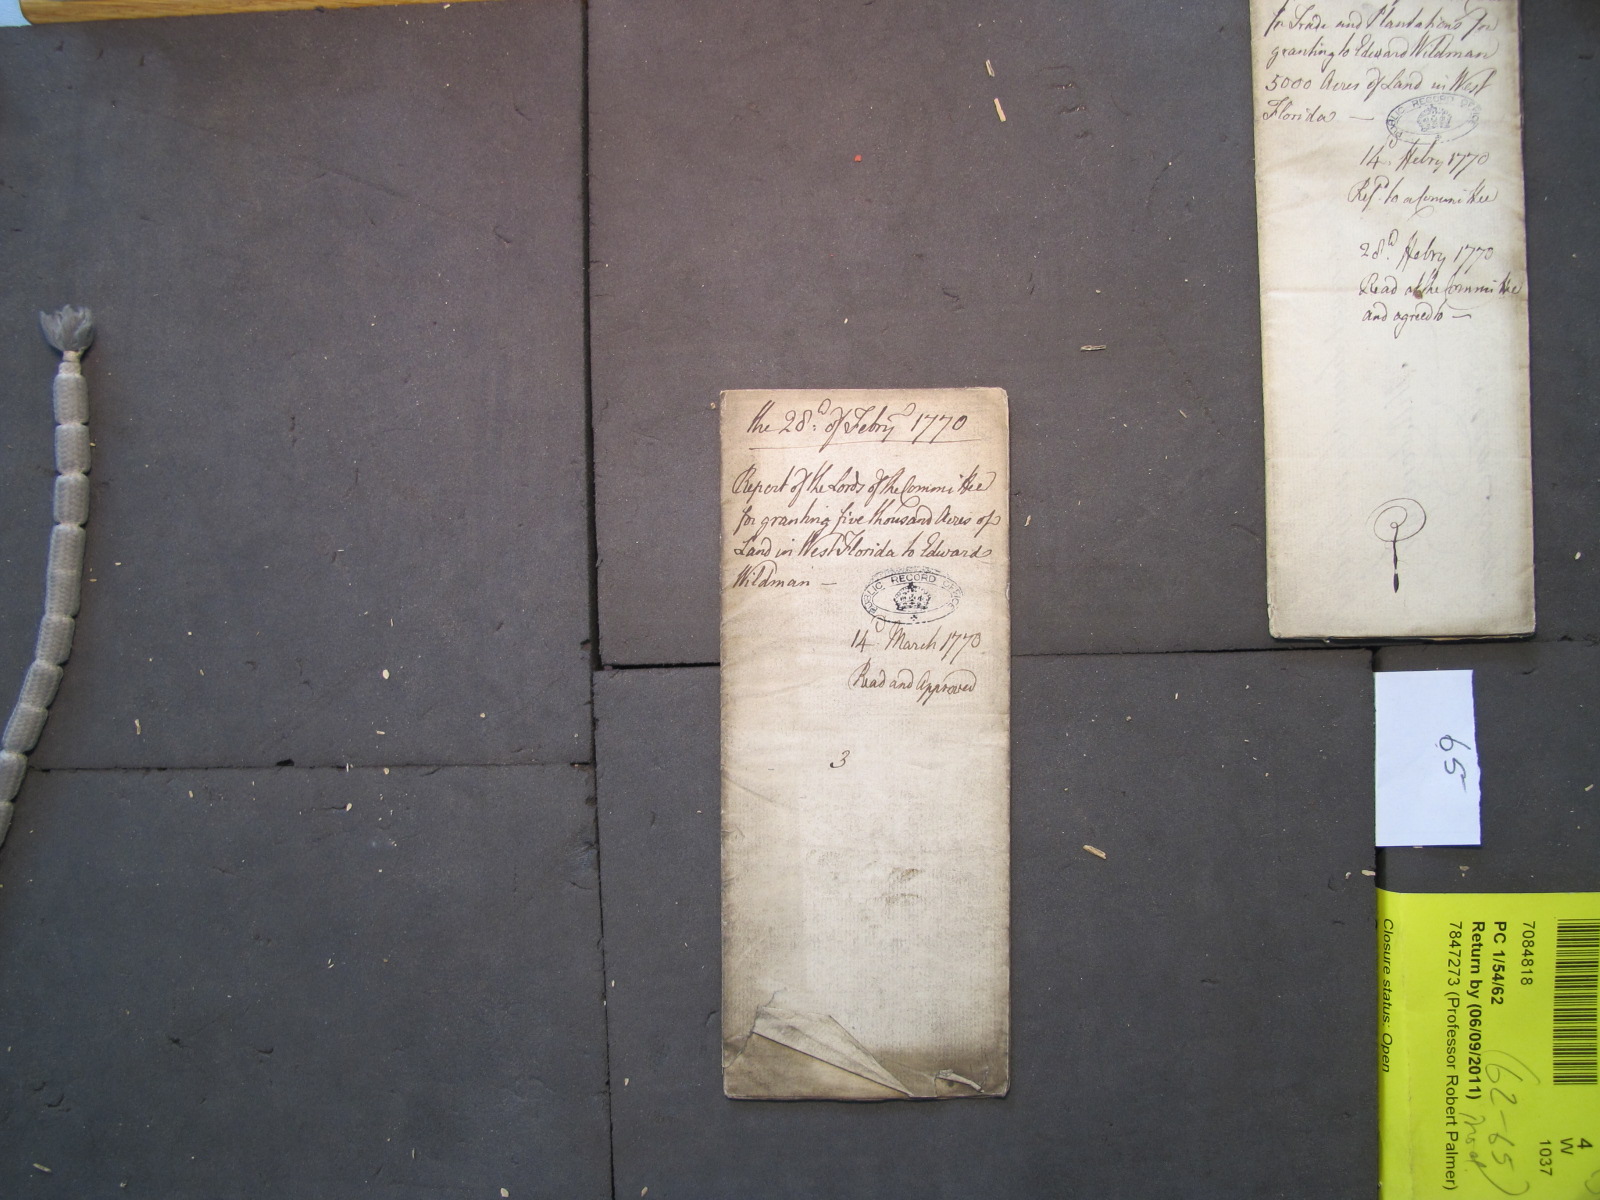 the 28.d of Febry 1770
Report of the Lords of the Committee
for granting five thousand Acres of
Land in West Florida to Edward
Wildman —
PUBLIC RECORD OFFICE
14.d March 1770
Read and Approved
3
for Trade and Plantations for
granting to Edward Wildman
5000 Acres of Land in West
Florida —
PUBLIC RECORD OFFICE
14.d Febry 1770
Ref.d to a Committee
28.d Febry 1770
Read at the Committee
and agreed to —
65
7084818
PC 1/54/62
Return by (06/09/2011)
7847273 (Professor Robert Palmer)
Closure status: Open
(62-65)
4
W
1037